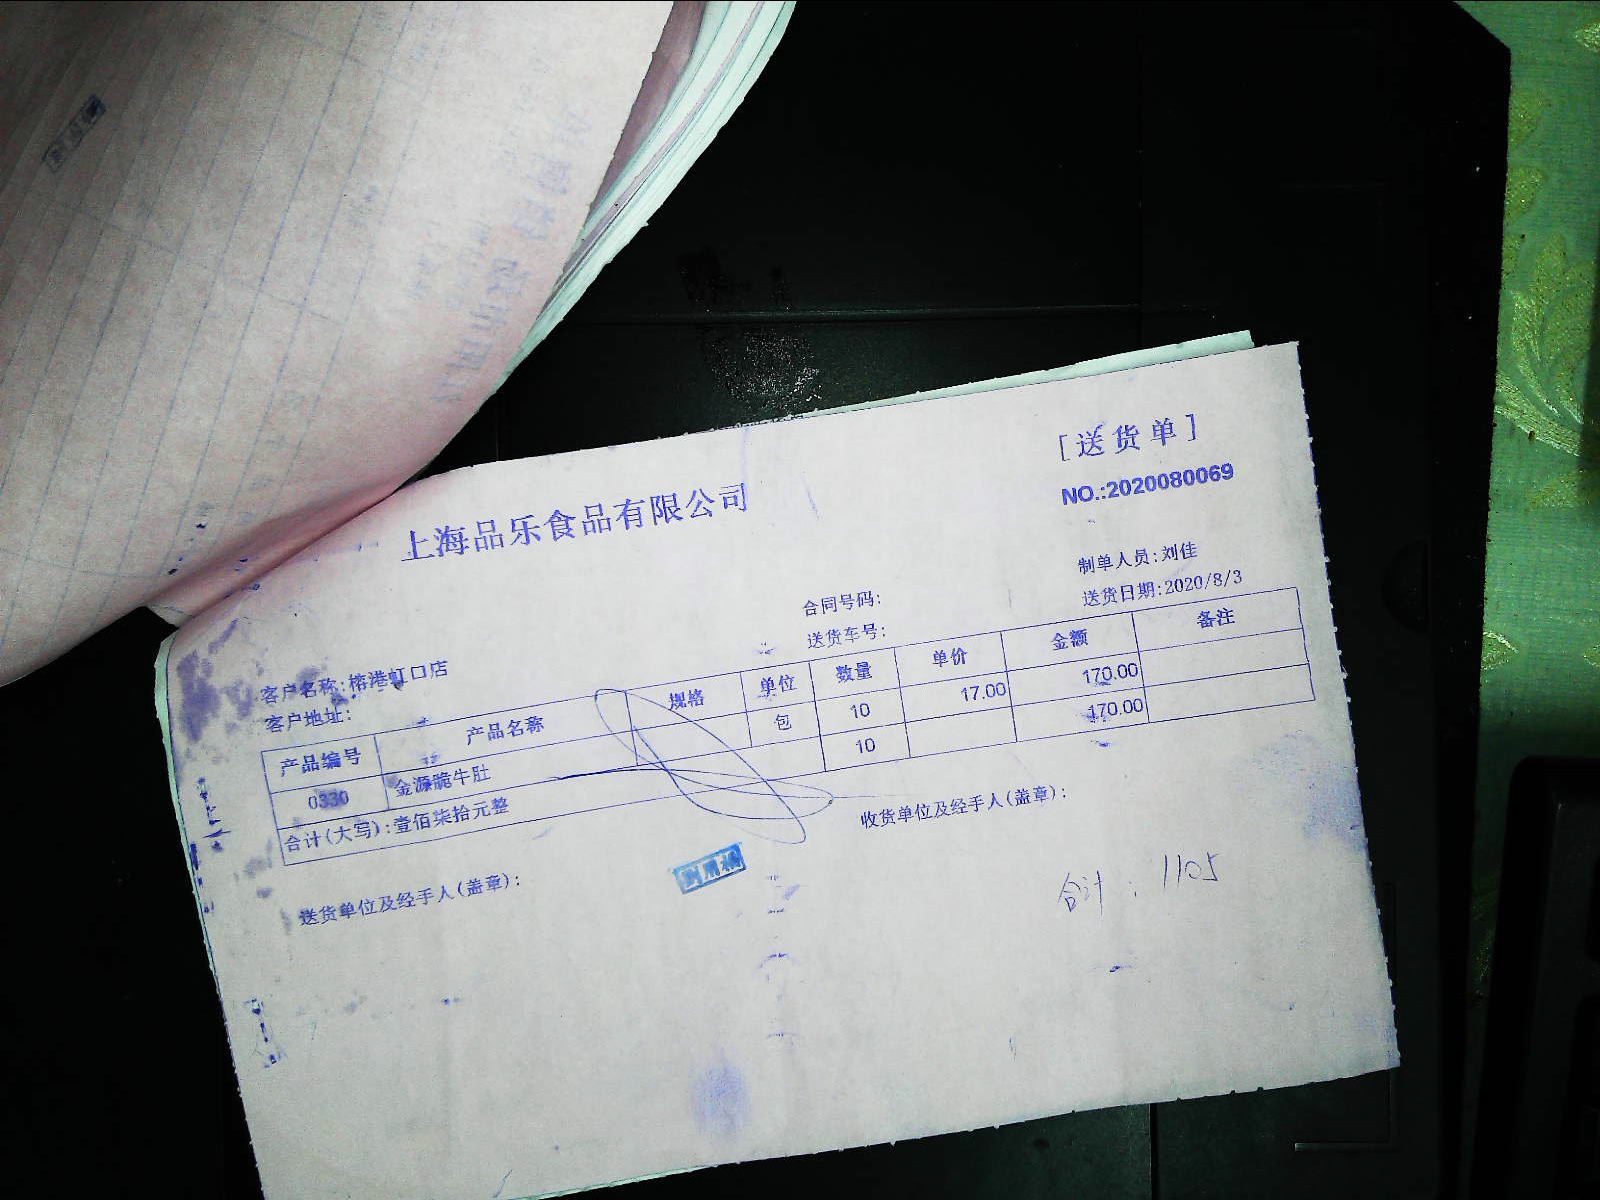 [送货单]
NO.:2020080069
上海品乐食品有限公司
制单人员:刘佳
合同号码:
送货日期:2020/8/3
送货车号:
客户名称:榕港虹口店
客户地址:
产品编号 产品名称 规格 单位 数量 单价 金额 备注
0330 金源脆牛肚 包 10 17.00 170.00
合计(大写):壹佰柒拾元整 10 170.00
送货单位及经手人(盖章): 收货单位及经手人(盖章):
合计:1105